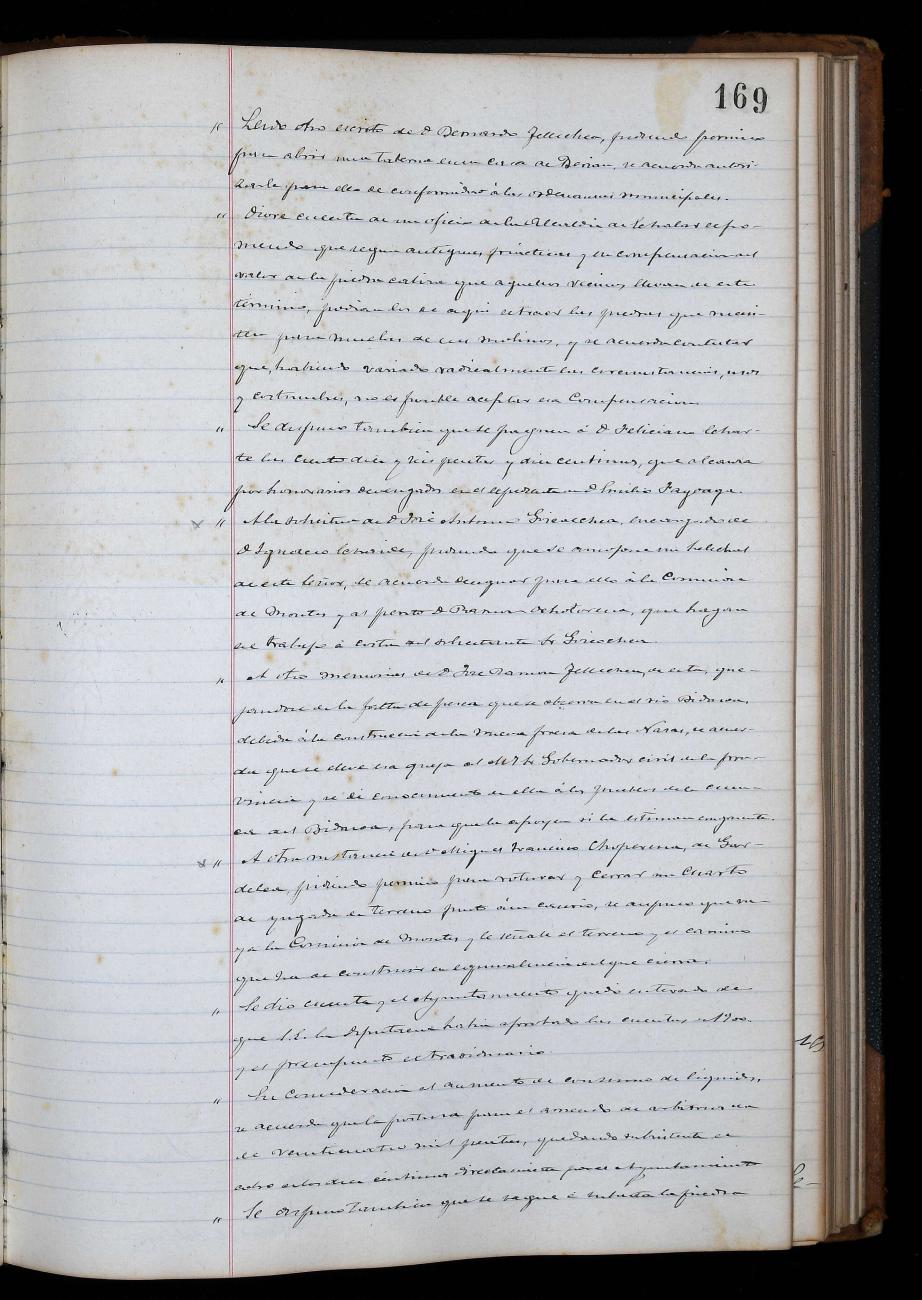 169
" Leido otro escrito de D Bernardo Tellechea, pidiendo permiso
para abrir una taberna en su casa de , se acuerda autori-
zarle para ello de conformidad á las ordenanzas municipales.
" Diose cuenta de un oficio de la Alcaldia de Echalar expo-
niendo que segun antiguas prácticas y en compensacion del
valor de la piedra caliza que aquellos vecinos llevan de este
término, podian los de aqui extraer las piedras que necesi-
ten para muelas de sus molinos, y se acuerda contestar
que, habiendo variado radicalmente las circunstancias, usos
y costumbres, no es posible aceptar esa compensacion.
" Se dispuso tambien que se paguen á D Feliciano
las ciento diez y seis pesetas y diez centimos, que alcanza
por honorarios devengados en el expediente de D Emilio
x " A la solicitud de D José Antonio Goicoechea, encargado de
D Ignacio , pidiendo que se amojone un helechal
de este Señor, se acuerda designar para ello á la Comision
de Montes y al perito D Ramon , que hagan
ese trabajo á costa del solicitante Sr Goicoechea.
" A otro memorial de D José Ramon Tellechea, de esta, que-
jandose de la falta de pesca que se observa en el rio Bidasoa,
debida á la construccion de la nueva presa de las Nasas, se acuer-
da que se eleve esa queja al Sr Gobernador civil de la pro-
vincia y se dé conocimiento de ella á los pueblos de la cuen-
ca del Bidasoa, para que la apoyen si lo estiman conveniente.
x " A otra instancia de D Miguel Francisco Choperena, de
, pidiendo permiso para roturar y cerrar un cuarto
de yugada de terreno junto á su caserio, se dispuso que va-
ya la Comision de Montes y le señale el terreno y el camino
que ha de construir en equivalencia del que cierra.
" Se dió cuenta y el Ayuntamiento quedó enterado de
que S.E. la Diputacion habia aprobado las cuentas de 1900.
y el presupuesto extraordinario.
" En consideracion al aumento de consumo de liquidos,
se acuerda que la postura para el arriendo de arbitrios sea
de veinticuatro mil pesetas, quedando subsistente el
directamente por el Ayuntamiento
" Se dispuso tambien que se saque á subasta la piedra